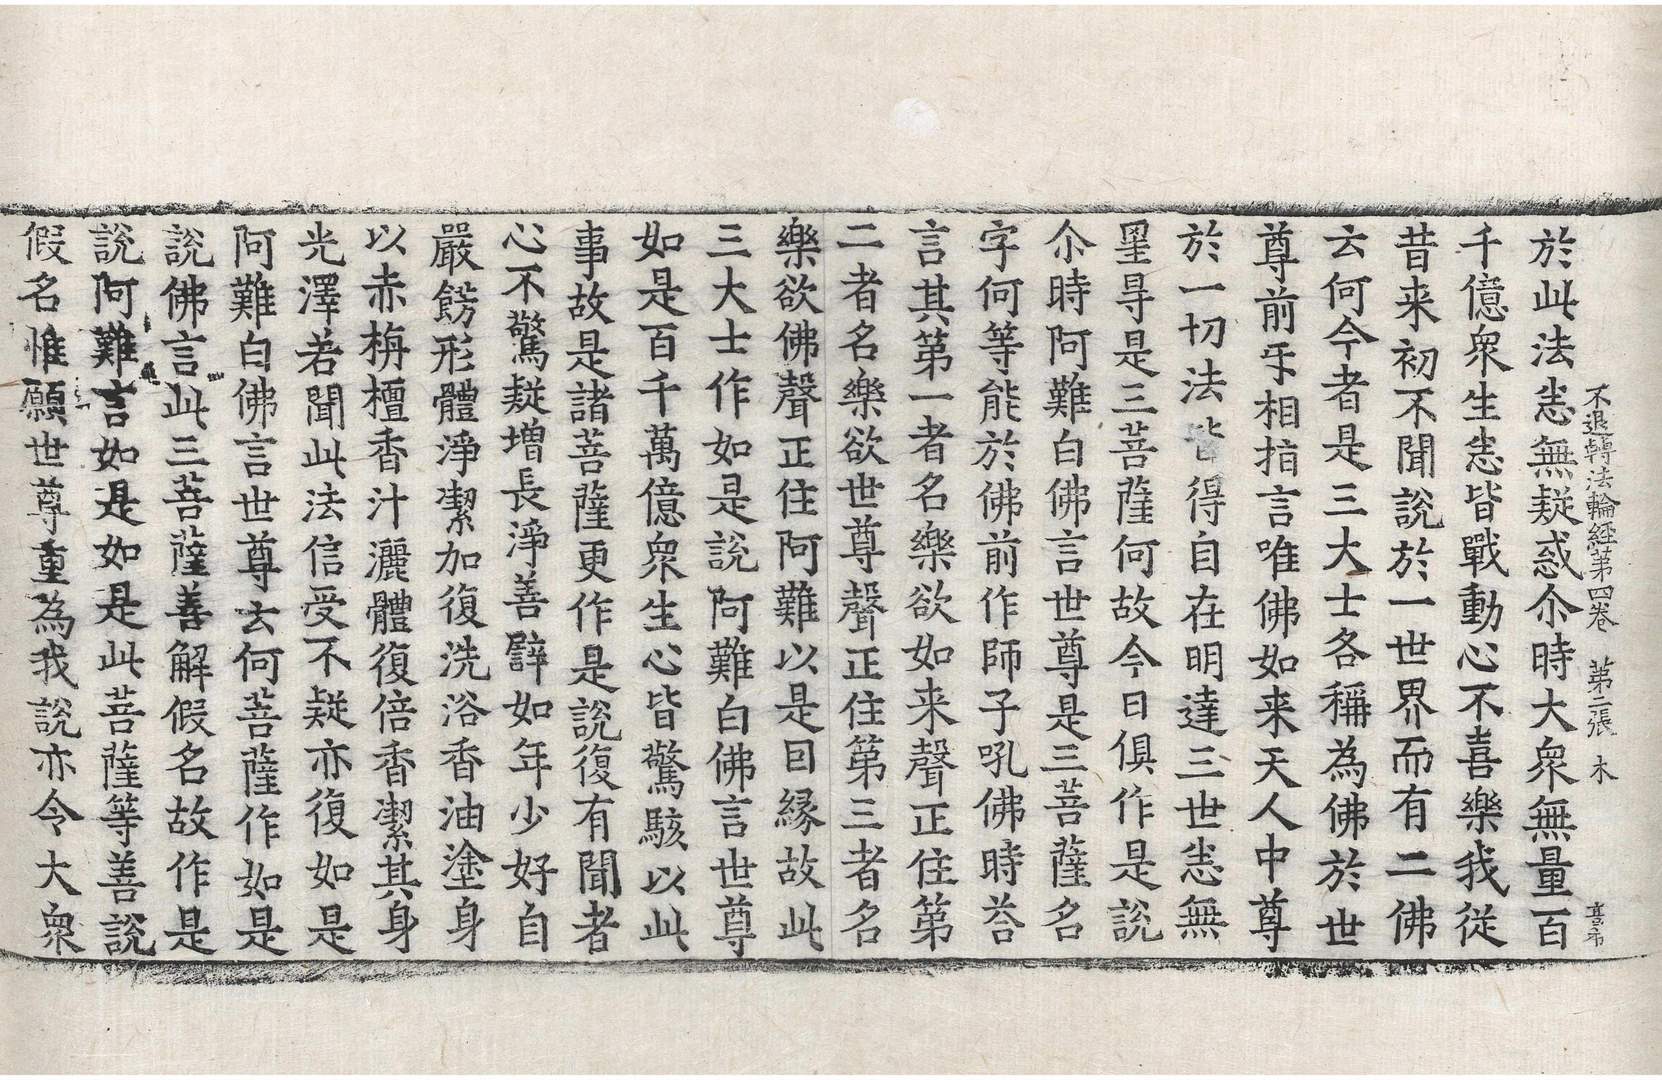 不退轉法輪經第四卷 第二張 木
於此法恙無疑惑尒時大衆無量百
千億衆生恙皆戰動心不喜樂我從
昔来初不聞說於一世界而有二佛
云何今者是三大士各稱為佛於世
尊前㸦相指言唯佛如来天人中尊
於一切法皆得自在明達三世恙無
罣㝵是三菩薩何故今日俱作是說
尒時阿難白佛言世尊是三菩薩名
字何等能於佛前作師子吼佛時荅
言其第一者名樂欲如来聲正住第
二者名樂欲世尊聲正住第三者名
樂欲佛聲正住阿難以是因縁故此
三大士作如是說阿難白佛言世尊
如是百千萬億衆生心皆驚駭以此
事故是諸菩薩更作是說復有聞者
心不驚疑増長淨善譬如年少好自
嚴餝形體淨㓗加復洗浴香油塗身
以赤栴檀香汁灑體復倍香㓗其身
光澤若聞此法信受不疑亦復如是
阿難白佛言世尊云何菩薩作如是
說佛言此三菩薩善解假名故作是
說阿難言如是如是此菩薩等善說
假名惟願世尊重為我說亦令大衆